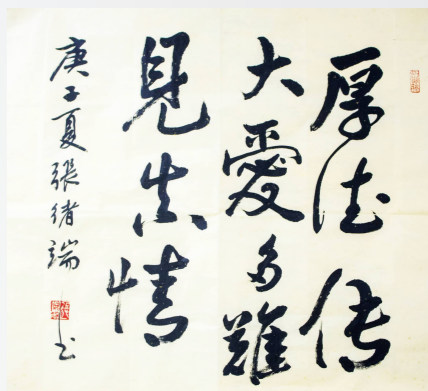 厚德传
大愛多難
見真情
庚子夏張緒端书